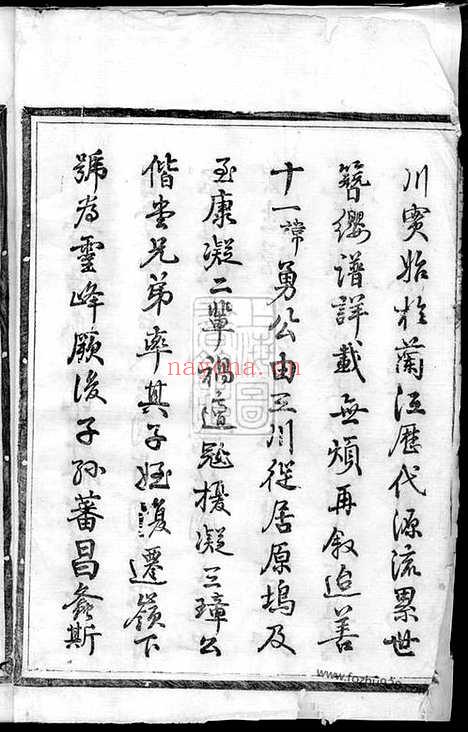 川實始於蘭江歷代源流累世
簪纓譜詳載無煩再敘迨善
十一常勇公由三川從居原塢及
至康凝二輩禍遭寇擾凝三璋公
偕堂兄弟率其子姪復遷嶺下
號為靈峰厥後子孫蕃昌螽斯
nayona.cn
www.fozhu920